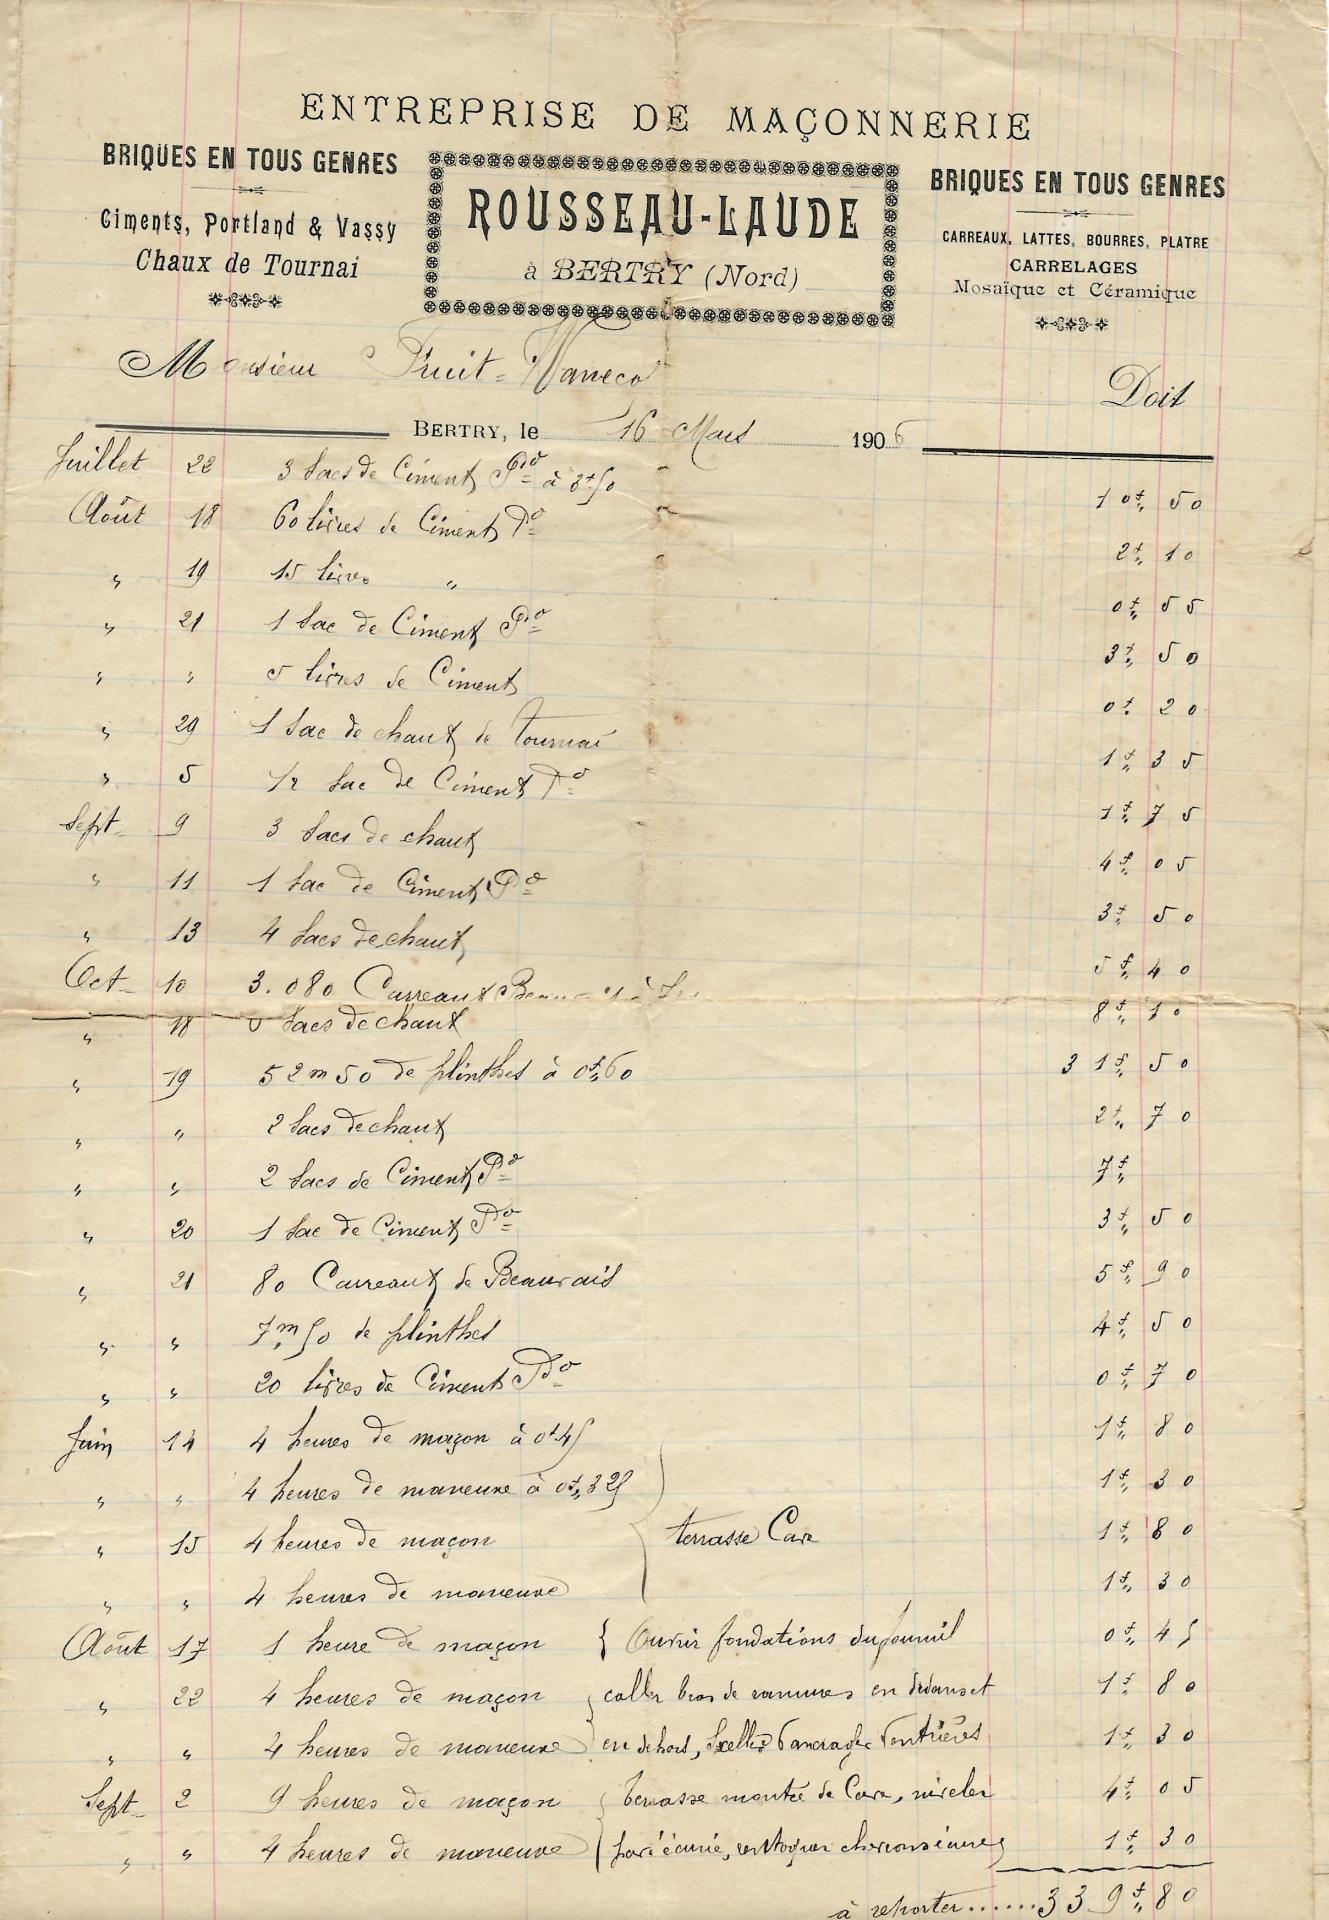 ENTREPRISE DE MAÇONNERIE
BRIQUES EN TOUS GENRES
Ciments, Portland & Vassy
Chaux de Tournai
ROUSSEAU-LAUDE
à BERTRY (Nord)
BRIQUES EN TOUS GENRES
CARREAUX, LATTES, BOURRES, PLATRE
CARRELAGES
Mosaïque et Céramique
Monsieur Fruit-Waneco Doit
BERTRY, le 16 Mars 1906
Juillet 22 3 Sacs de Ciment Pd à 3f50 10f,, 50
Août 18 60 livres de Ciment Pd 2f,, 10
" 19 15 livres " 0f,, 55
" 21 1 Sac de Ciment Pd 3f,, 50
" " 5 livres de Ciment 0f,, 20
" 29 1 Sac de chaux de Tournai 1f,, 35
" 5 1/2 Sac de Ciment Pd 1f,, 75
Sept 9 3 Sacs de chaux 4f,, 05
" 11 1 Sac de Ciment Pd 3f,, 50
" 13 4 Sacs de chaux 5f,, 40
Oct 10 3.080 Carreaux
" 18 Sacs de chaux 8f,, 10
" 19 52m50 de plinthes à 0f,,60 31f,, 50
" " 2 Sacs de chaux 2f,, 70
" " 2 Sacs de Ciment Pd 7f,,
" 20 1 Sac de Ciment Pd 3f,, 50
" 21 80 Carreaux de Beauvais 5f,, 90
" " 7m,50 de plinthes 4f,, 50
" " 20 livres de Ciment Pd 0f,, 70
Juin 14 4 heures de maçon à 0f45 1f,, 80
" " 4 heures de maneuve à 0f,,325 1f,, 30
" 15 4 heures de maçon terrasse Cave 1f,, 80
" " 4 heures de maneuve 1f,, 30
Août 17 1 heure de maçon Ouvrir fondations du fournil 0f,, 45
" 22 4 heures de maçon caller bas de rainures en dedans et 1f,, 80
" " 4 heures de maneuve en dehors, 1f,, 30
Sept 2 9 heures de maçon terrasse montée de Cave, niveler 4f,, 05
" " 4 heures de maneuve pavé écurie, 1f,, 30
à reporter......339f,, 80